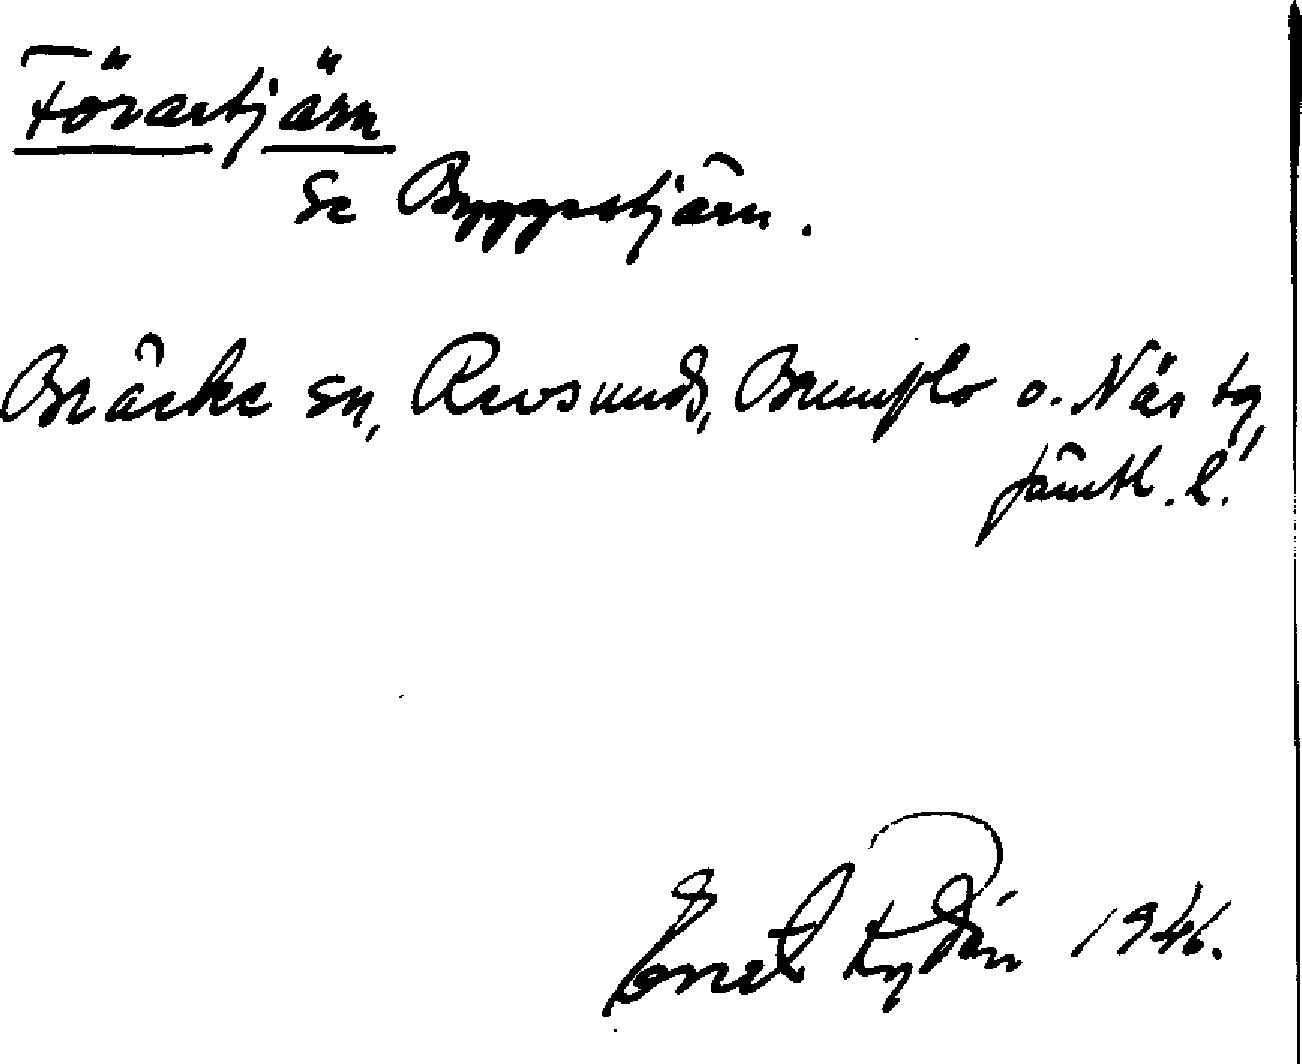 Förartjärn
Se Byggestjärn.
Bräcke sn, Revsunds, Brunflo o. Näs tg,
Jämtl. l.
Ernst Rydén 1946.